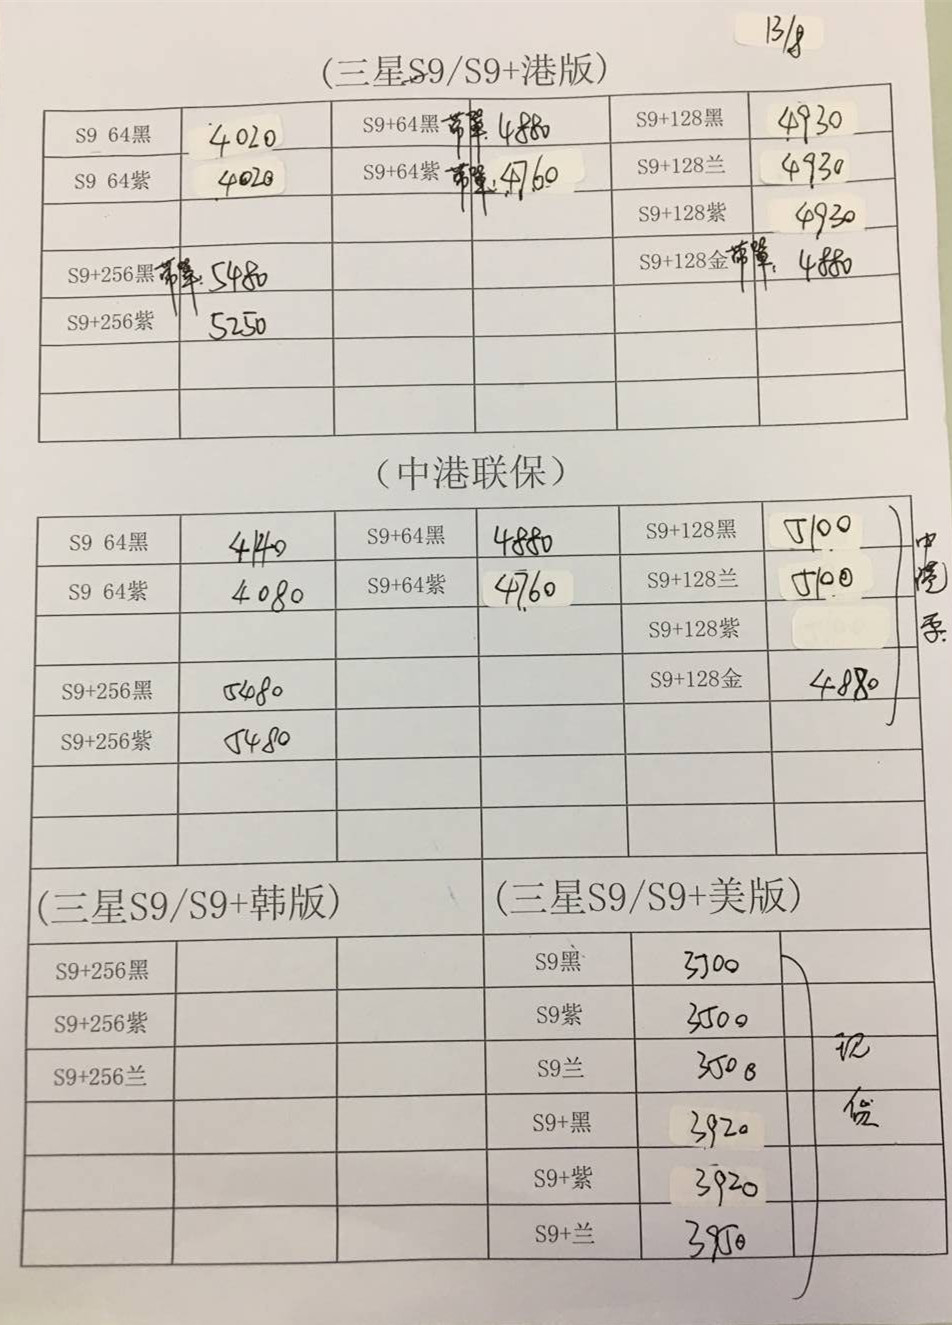 13/8
(三星S9/S9+港版)
S9 64黑 4020 S9+64黑 带單: 4880 S9+128黑 4930
S9 64紫 4020 S9+64紫 带單: 4760 S9+128兰 4930
S9+128紫 4930
S9+256黑 带單: 5480 S9+128金 带單: 4880
S9+256紫 5250
(中港联保)
S9 64黑 4140 S9+64黑 4880 S9+128黑 5100
S9 64紫 4080 S9+64紫 4760 S9+128兰 5100
S9+128紫
S9+256黑 5480 S9+128金 4880
S9+256紫 5480
中港
(三星S9/S9+韩版) (三星S9/S9+美版)
S9+256黑 S9黑 3500
S9+256紫 S9紫 3500
S9+256兰 S9兰 3500
S9+黑 3920
S9+紫 3920
S9+兰 3950
现
货